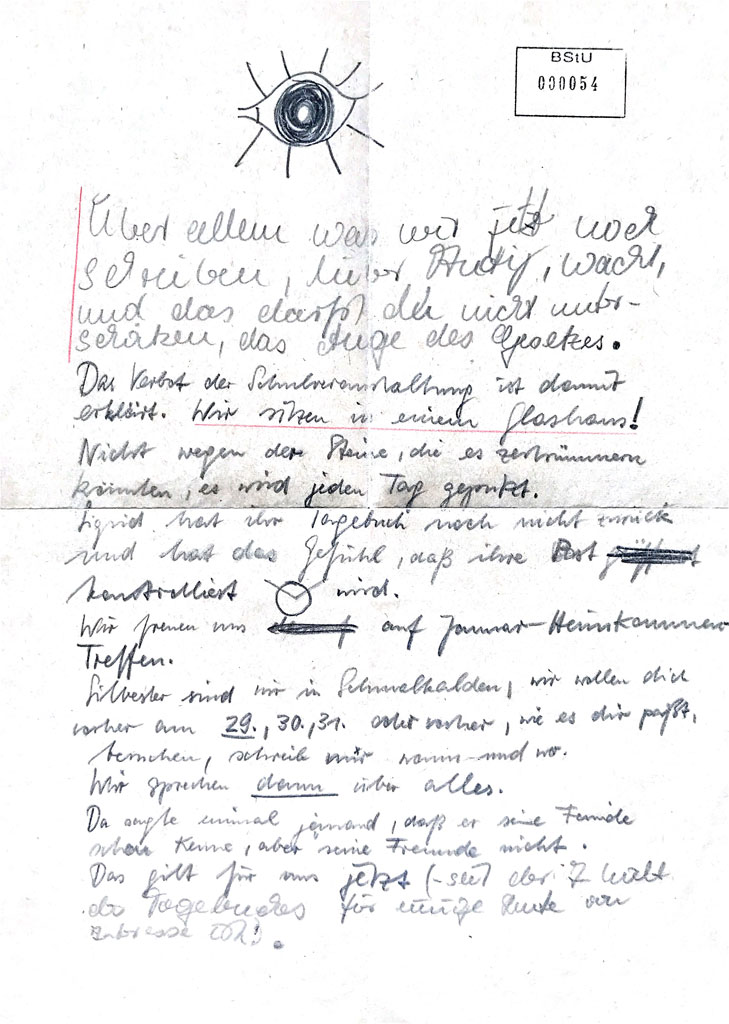 BStU
000054
Über allem was wir jetzt noch
schreiben, lieber, wacht,
und das darfst du nicht unter-
schätzen, das Auge des Gesetzes.
Das Verbot der Schulveranstaltung ist damit
erklärt. Wir sitzen in einem Glashaus!
Nicht wegen der Steine, die es zertrümmern
könnten, es wird jeden Tag geputzt.
Sigrid hat ihr Tagebuch noch nicht zurück
und hat das Gefühl, daß ihre Post
kontrolliert wird.
Wir freuen uns auf Januar-Heimkommen-
Treffen.
Silvester sind wir in Schmalkalden, wir wollen dich
vorher am 29., 30., 31. oder vorher, wie es dir paßt,
besuchen, schreib mir wann und wo.
Wir sprechen dann über alles.
Da sagte einmal jemand, daß er seine Feinde
schon kenne, aber seine Freunde nicht.
Das gilt für uns jetzt (-seit der Inhalt
des Tagebuches für einige Leute von
Interesse ist).